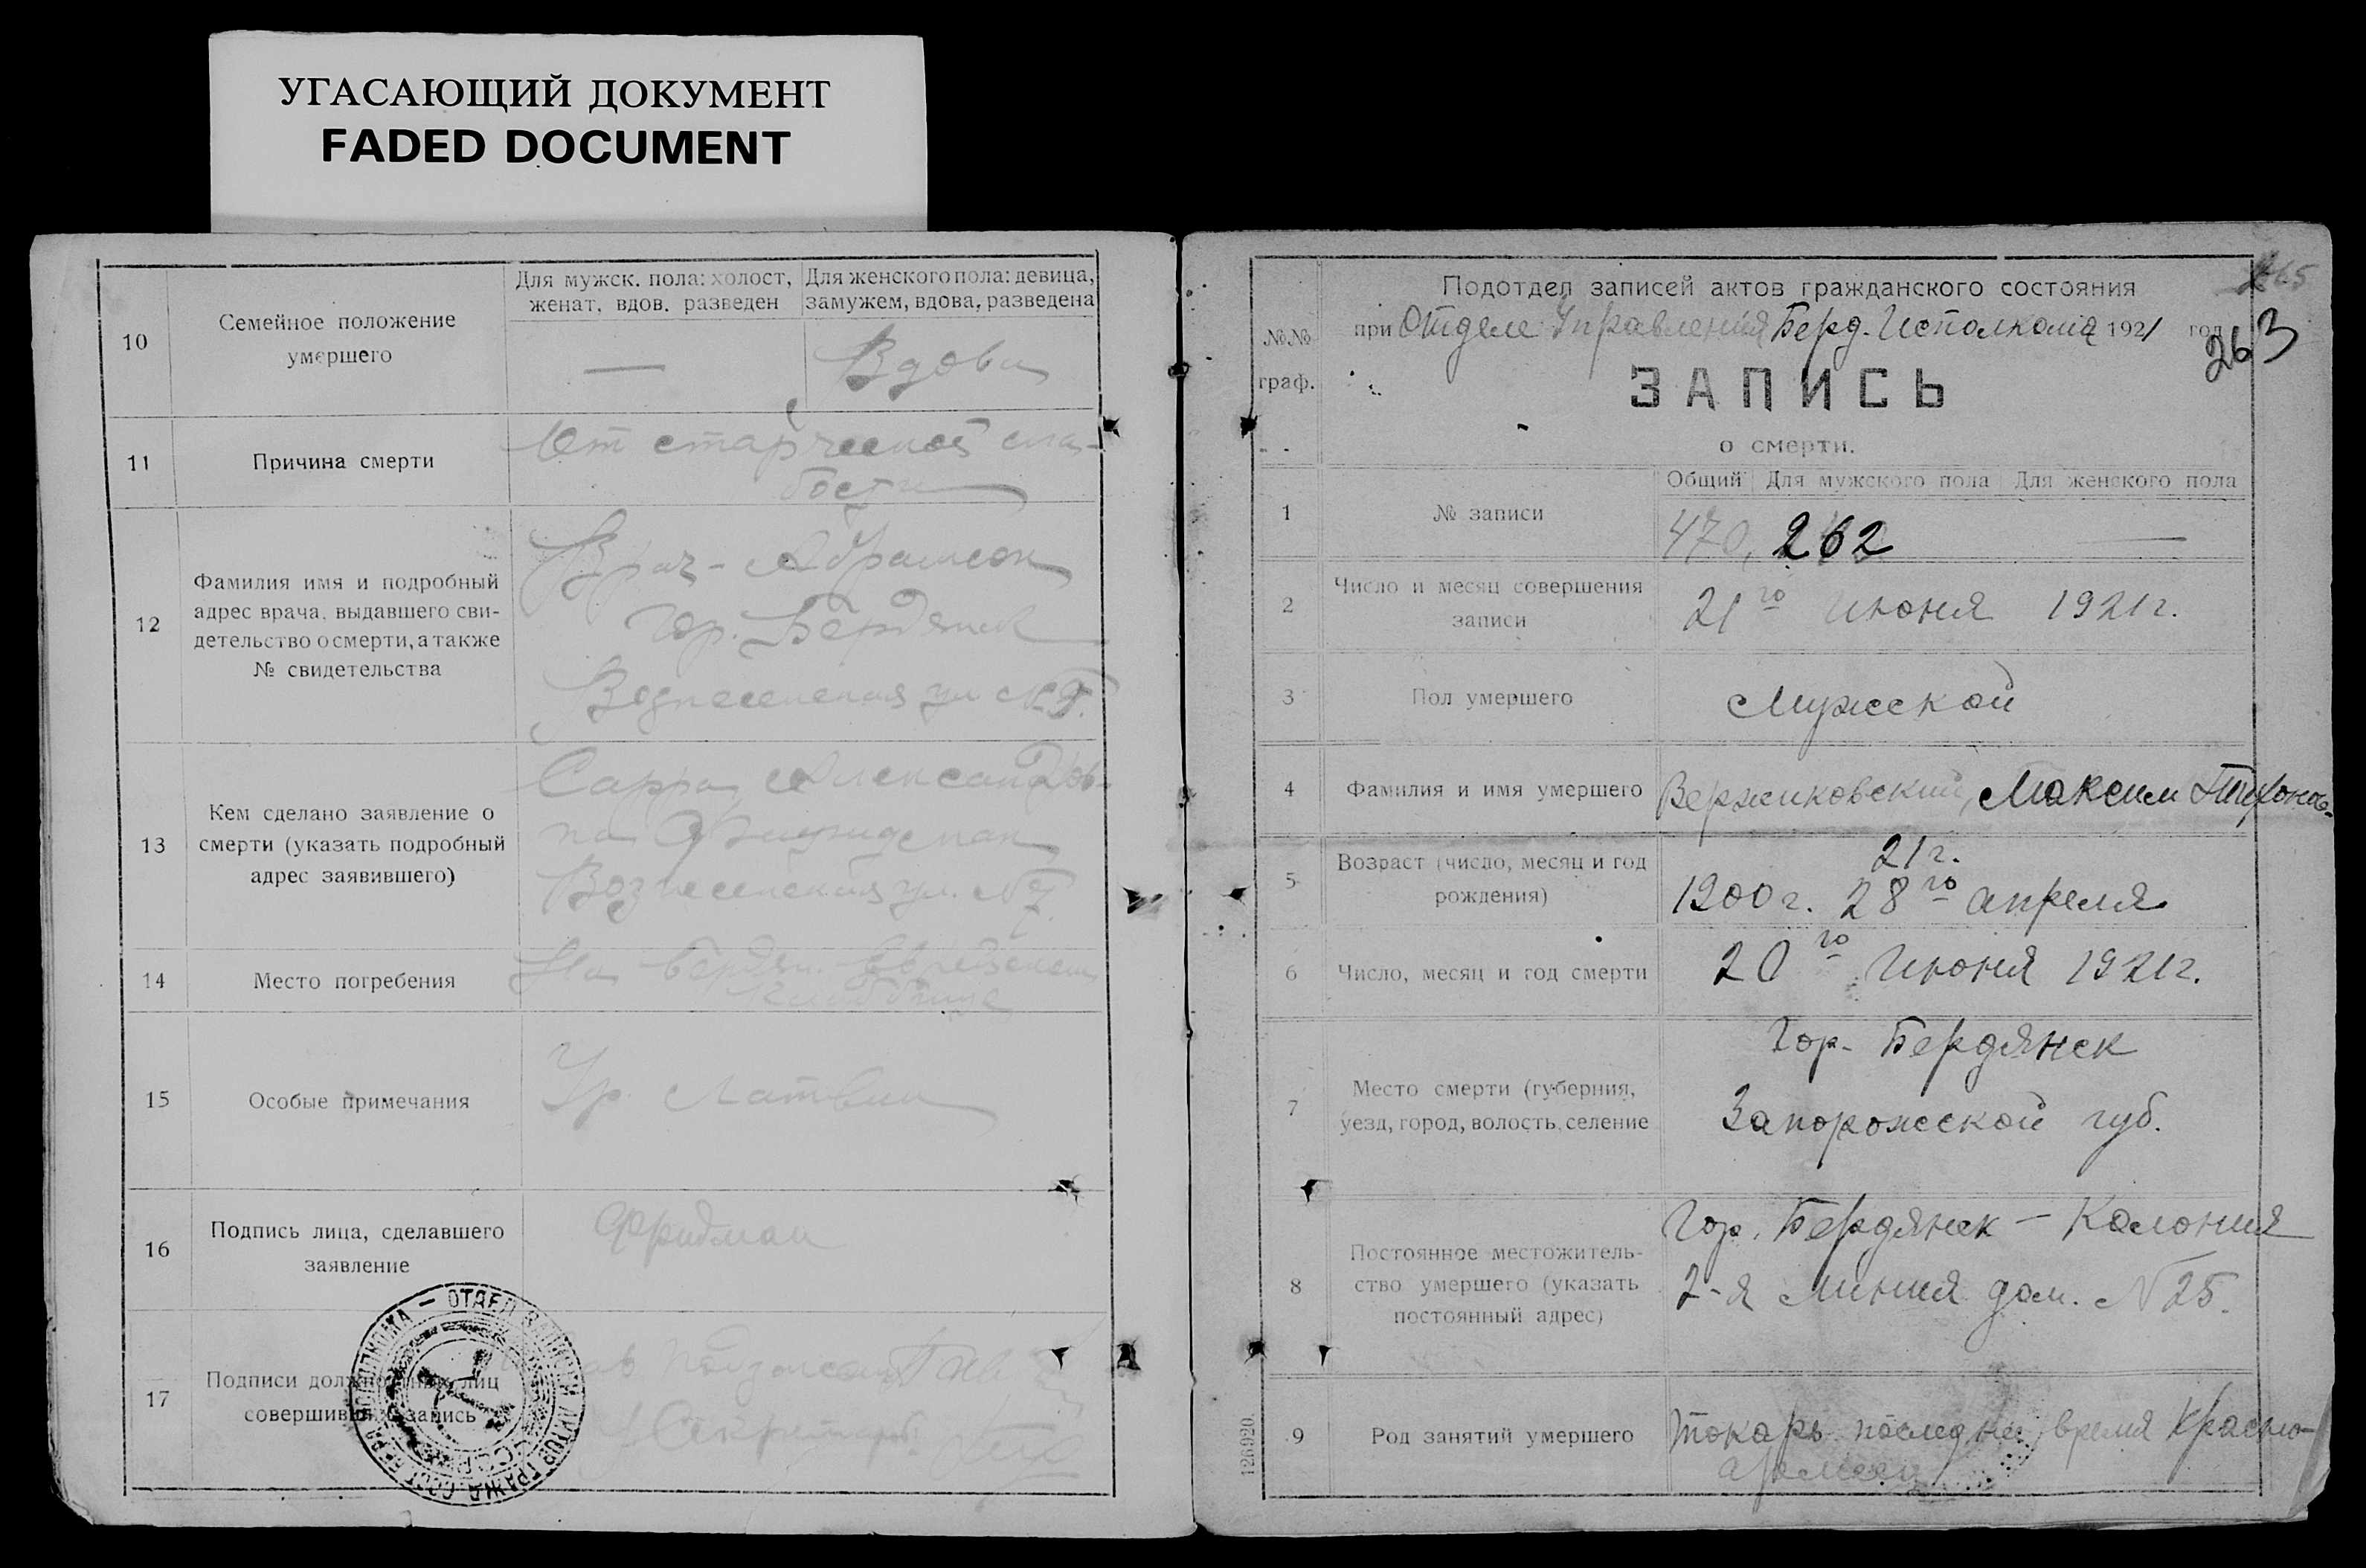 УГАСАЮЩИЙ ДОКУМЕНТ
FADED DOCUMENT
10
Семейное положение
умершего
Для мужск. пола: холост,
женат, вдов. разведен
Для женского пола: девица,
замужем, вдова, разведена
—
Вдова
11
Причина смерти
От старческой сла-
бости
12
Фамилия имя и подробный
адрес врача, выдавшего сви-
детельство о смерти, а также
№ свидетельства
Врач - Абрамсон
Гор. Бердянск
Вознесенская ул
13
Кем сделано заявление о
смерти (указать подробный
адрес заявившего)
Сарра Александров-
на
Вознесенская ул. №
14
Место погребения
На Бердян. Еврейском
кладбище
15
Особые примечания
Гр. Латвии
16
Подпись лица, сделавшего
заявление
Фридман
17
Подписи должностных лиц
совершивших запись
№№
граф.
Подотдел записей актов гражданского состояния
при Отделе Управления Берд. Исполкома 1921 год
265
263
ЗАПИСЬ
о смерти.
Общий
Для мужского пола
Для женского пола
1
№ записи
470,
262
—
2
Число и месяц совершения
записи
21го Июня 1921г.
3
Пол умершего
Мужской
4
Фамилия и имя умершего
Вержиковский, Максим Тихонов.
5
Возраст (число, месяц и год
рождения)
21г.
1900г. 28го апреля
6
Число, месяц и год смерти
20го Июня 1921г.
7
Место смерти (губерния,
уезд, город, волость, селение
Гор- Бердянск
Запорожской губ.
8
Постоянное местожитель-
ство умершего (указать
постоянный адрес)
Гор. Бердянск - Колония
2-я Линия дом. № 25.
9
Род занятий умершего
Токарь последнее время Красно-
армеец